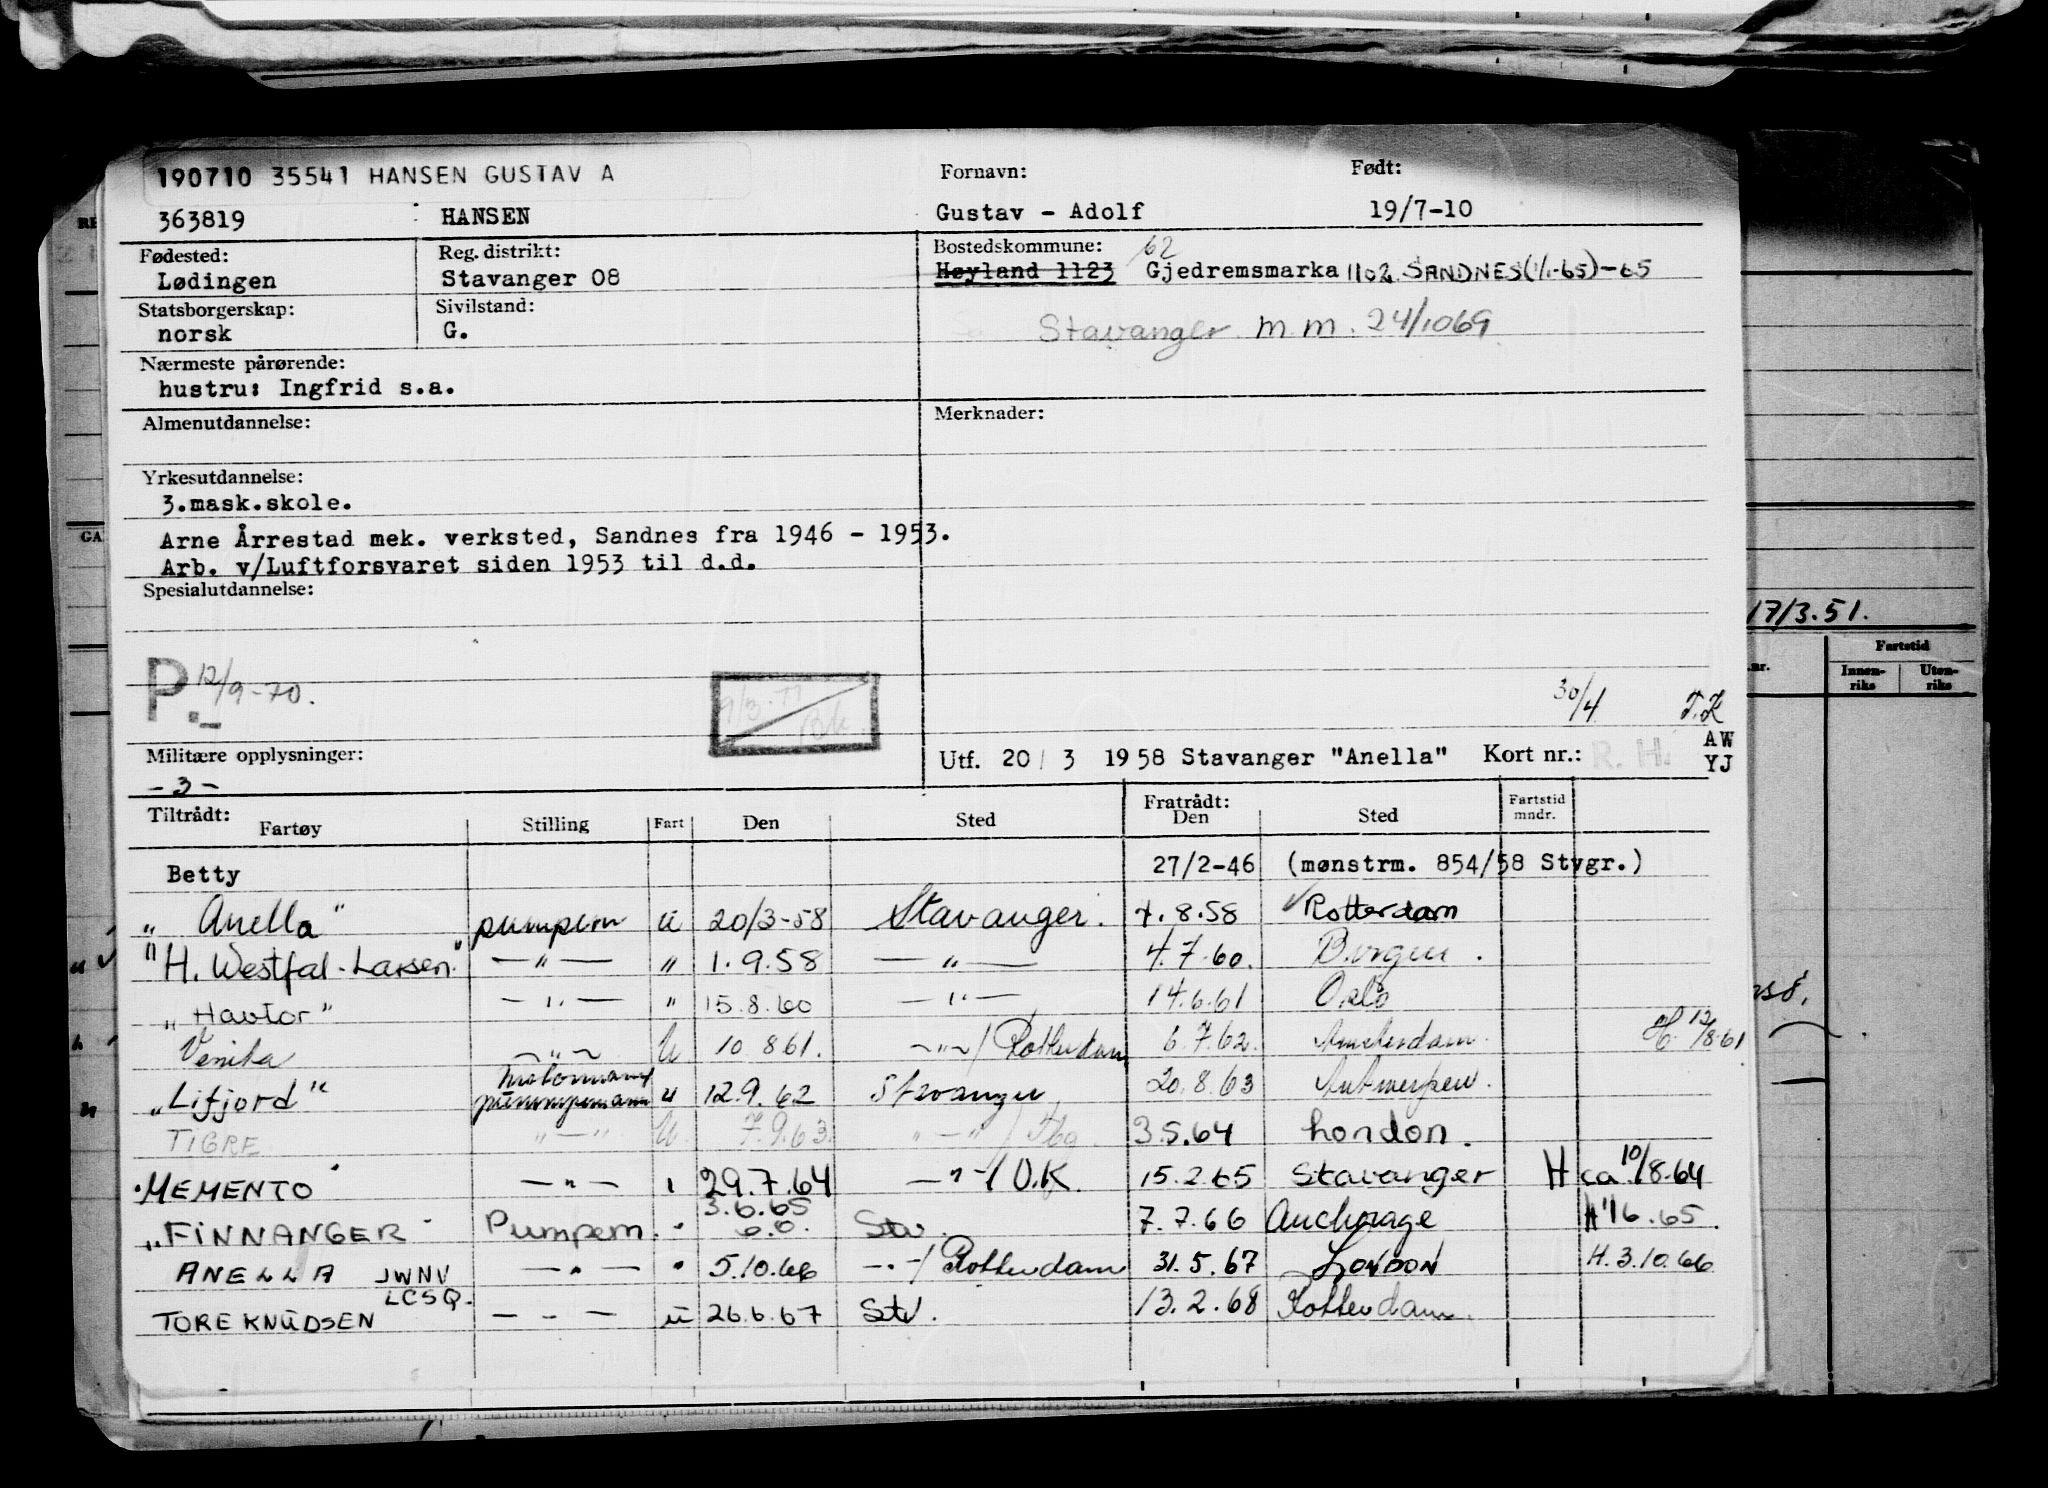 190710 35541 HANSEN GUSTAV A
Fornavn: Født:
363819 HANSEN Gustav - Adolf 19/7-10
Fødested: Reg. distrikt: Bostedskommune: 62
Lødingen Stavanger 08 Høyland 1123 Gjedremsmarka 1102 SANDNES (1/1-65)-65
Statsborgerskap: Sivilstand:
norsk G. Stavanger m.m. 24/1069
Nærmeste pårørende:
hustru: Ingfrid s.a.
Almenutdannelse: Merknader:
Yrkesutdannelse:
3.mask.skole.
Arne Årrestad mek. verksted, Sandnes fra 1946 - 1953.
Arb. v/Luftforsvaret siden 1953 til d.d.
Spesialutdannelse:
17/3.51.
Fartstid
Innen-riks Uten-riks
P.- 12/9-70. 9/3.77 30/4 T.K
Militære opplysninger: Utf. 20/3 1958 Stavanger "Anella" Kort nr.: R. H. AW YJ
-3-
Tiltrådt: Fratrådt:
Fartøy Stilling Fart Den Sted Den Sted Fartstid mndr.
Betty 27/2-46 (mønstrm. 854/58 Stvgr.)
"Anella" pumpem u 20/3-58 Stavanger. 7.8.58 Rotterdam
"H. Westfal-Larsen" —"— " 1.9.58 —"— 4.7.60. Bergen.
"Havtor" —"— " 15.8.60 —"— 14.6.61 Oslo
Venita —"— U 10 8 61. —"—/ Rotterdam 6.7.62. Amsterdam. H. 12/8.61
"Lifjord" motormann pumpemann u 12.9.62 Stavanger 20.8.63 Antwerpen.
TIGRE "—" U. 7.9.63. "—"/ 3.5.64 London.
"MEMENTO" —"— 29.7.64 —"—/ U.K. 15.2.65 Stavanger H ca 10/8.64
"FINNANGER" Pumpem. " 3.6.65 Stv. 7.7.66 Anchorage H 16.65.
ANELLA JWNV —"— " 5.10.66 —"—/ Rotterdam 31.5.67 LONDON H.3.10.66
TORE KNUDSEN LCSQ. —"— u 26.6.67 Stv. 13.2.68 Rotterdam.